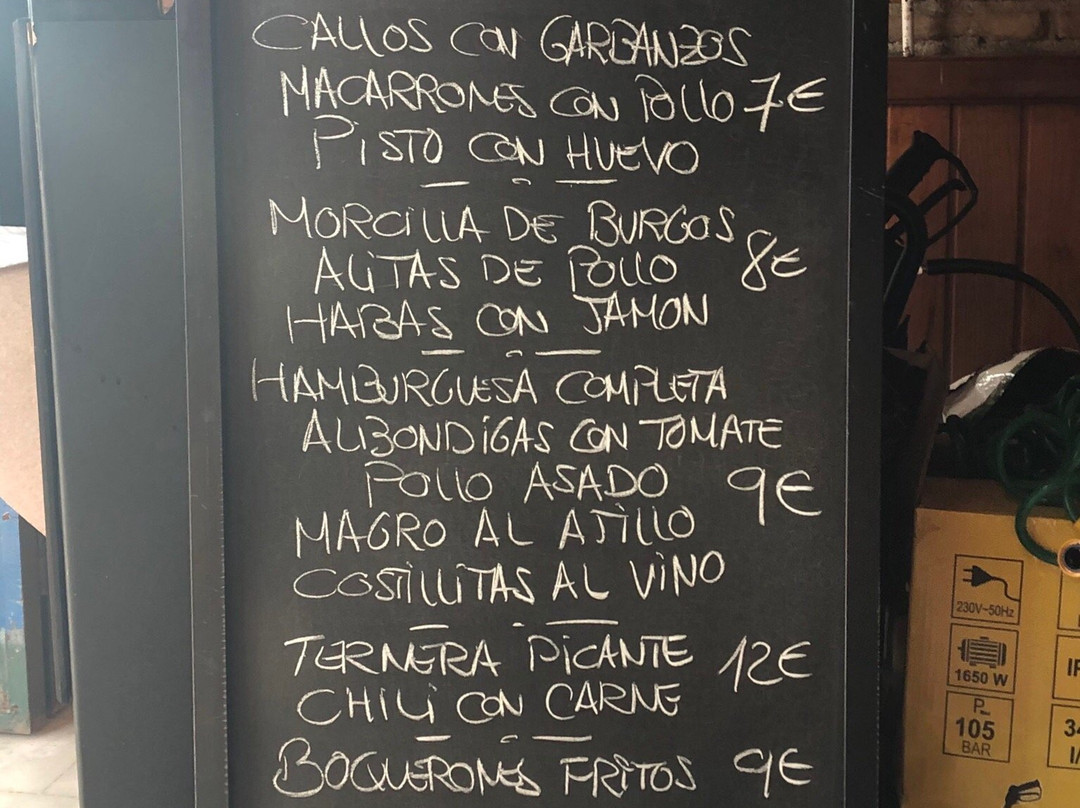 CALLOS CON GARBANZOS
MACARRONES CON POLLO 7€
PISTO CON HUEVO
MORCILLA DE BURGOS
ALITAS DE POLLO 8€
HABAS CON JAMON
HAMBURGUESA COMPLETA
ALBONDIGAS CON TOMATE
POLLO ASADO 9€
MAGRO AL AJILLO
COSTILLITAS AL VINO
TERNERA PICANTE 12€
CHILI CON CARNE
BOQUERONES FRITOS 9€
230V~50Hz
1650 W
105
BAR